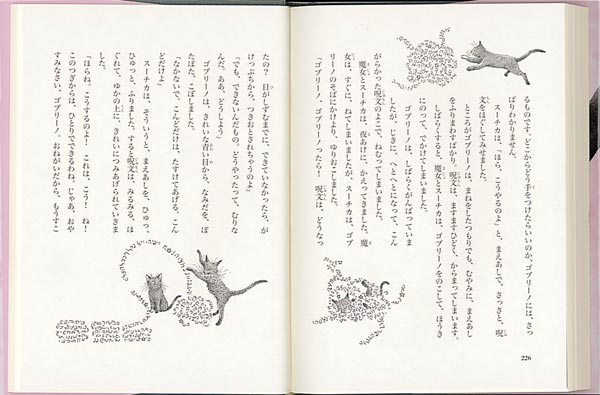 るものです。どこからどう手をつけたらいいのか、ゴブリーノには、さっ
ぱりわかりません。
スーチカは、「ほら、こうやるのよ」と、まえあしで、さっさと、呪
文をほぐしてみせました。
ところがゴブリーノは、まねをしたつもりでも、むやみに、まえあし
をふりまわすばかり。呪文は、ますますひどく、からまってしまいます。
しばらくすると、魔女とスーチカは、ゴブリーノをのこして、ほうき
にのって、でかけてしまいました。
ゴブリーノは、しばらくがんばっていま
したが、じきに、へとへとになって、こん
がらかった呪文のよこで、ねむってしまいました。
魔女とスーチカは、夜あけに、かえってきました。魔
女は、すぐに、ねてしまいましたが、スーチカは、ゴブ
リーノのそばにかけより、ゆりおこしました。
「ゴブリーノ、ゴブリーノったら！　呪文は、どうなっ
226
たの？　日がしずむまでに、できていなかったら、が
け っぷちから、つきおとされちゃうのよ」
「でも、できないんだもの。どうやったって、むりな
んだ。ああ、どうしよう」
ゴブリーノは、きれいな青い目から、なみだを、ぽ
たぽた、こぼしました。
「なかないで。こんどだけは、たすけてあげる。こん
どだけよ」
スーチカは、そういうと、まえあしを、ひゅっ、
ひゅっと、ふりました。すると呪文は、みるみる、ほ
ぐれて、ゆかの上に、きれいにつみあげられていきま
した。
「ほらね、こうするのよ！　これは、こう！　ね！
このつぎからは、ひとりでできるわね。じゃあ、おや
すみなさい、ゴブリーノ。おねがいだから、もうすこ